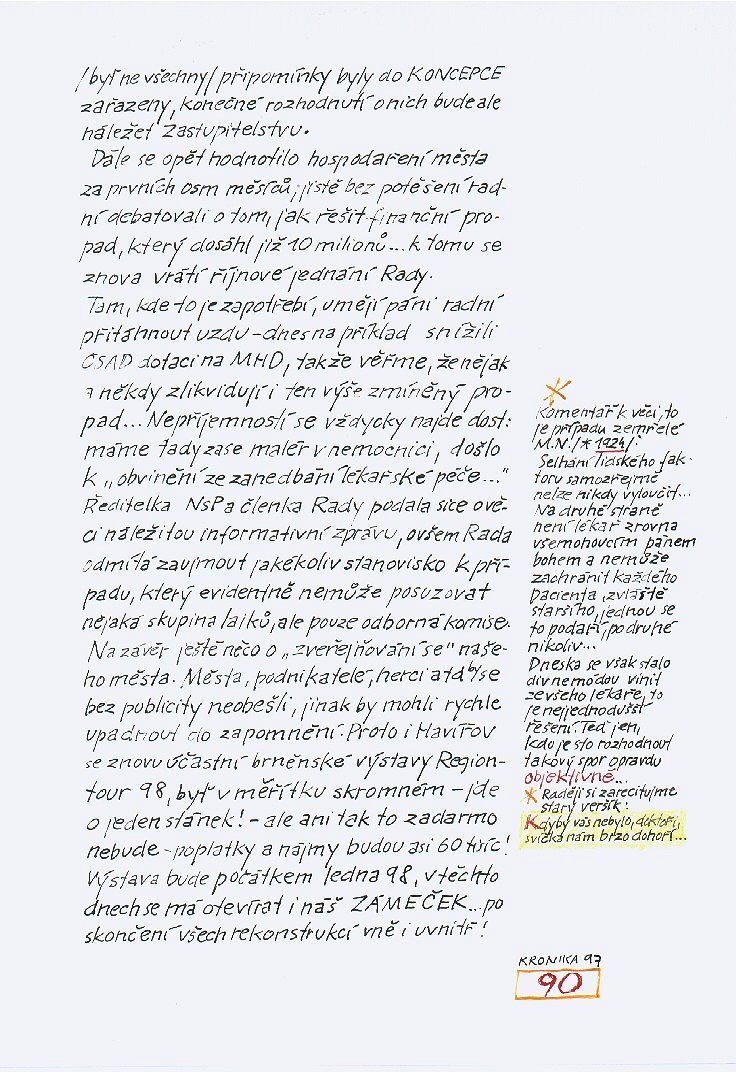 /byť ne všechny/ připomínky byly do KONCEPCE
zařazeny, konečné rozhodnutí o nich bude ale
náležet Zastupitelstvu.
Dále se opět hodnotilo hospodaření města
za prvních osm měsíců; jistě bez potěšení rad-
ní debatovali o tom, jak řešit finanční pro-
pad, který dosáhl již 10 milionů... k tomu se
znova vrátí říjnové jednání Rady.
Tam, kde to je zapotřebí, umějí páni radní
přitáhnout uzdu - dnes na příklad snížili
ČSAD dotaci na MHD, takže věřme, že nějak
a někdy zlikvidují i ten výše zmíněný pro-
pad... Nepříjemností se vždycky najde dost:
máme tady zase malér v nemocnici, došlo
k „obvinění ze zanedbání lékařské péče..."
Ředitelka NsP a členka Rady podala sice o vě-
ci náležitou informativní zprávu, ovšem Rada
odmítá zaujmout jakékoliv stanovisko k pří-
padu, který evidentně nemůže posuzovat
nějaká skupina laiků, ale pouze odborná komise.
Na závěr ještě něco o „zveřejňování se" naše-
ho města. Města, podnikatelé, herci atd by se
bez publicity neobešli, jinak by mohli rychle
upadnout do zapomnění. Proto i Havířov
se znovu účastní brněnské výstavy Region-
tour 98, byť v měřítku skromném - jde
o jeden stánek! - ale ani tak to zadarmo
nebude - poplatky a nájmy budou asi 60 tisíc!
Výstava bude počátkem ledna 98, v těchto
dnech se má otevírat i náš ZÁMEČEK... po
skončení všech rekonstrukcí vně i uvnitř!
Komentář k věci, to
je případu zemřelé
M.N. /* 1924/:
Selhání lidského fak-
toru samozřejmě
nelze nikdy vyloučit...
Na druhé straně
není lékař zrovna
všemohoucím pánem
bohem a nemůže
zachránit každého
pacienta, zvláště
staršího, jednou se
to podaří, po druhé
nikoliv...
Dneska se však stalo
div ne módou vinit
ze všeho lékaře, to
je nejjednodušší
řešení. Teď jen,
kdo je s to rozhodnout
takový spor opravdu
objektivně...
* Raději si zarecitujme
starý veršík:
Kdyby vás nebylo, doktoři,
svíčka nám brzo dohoří...
KRONIKA 97
90